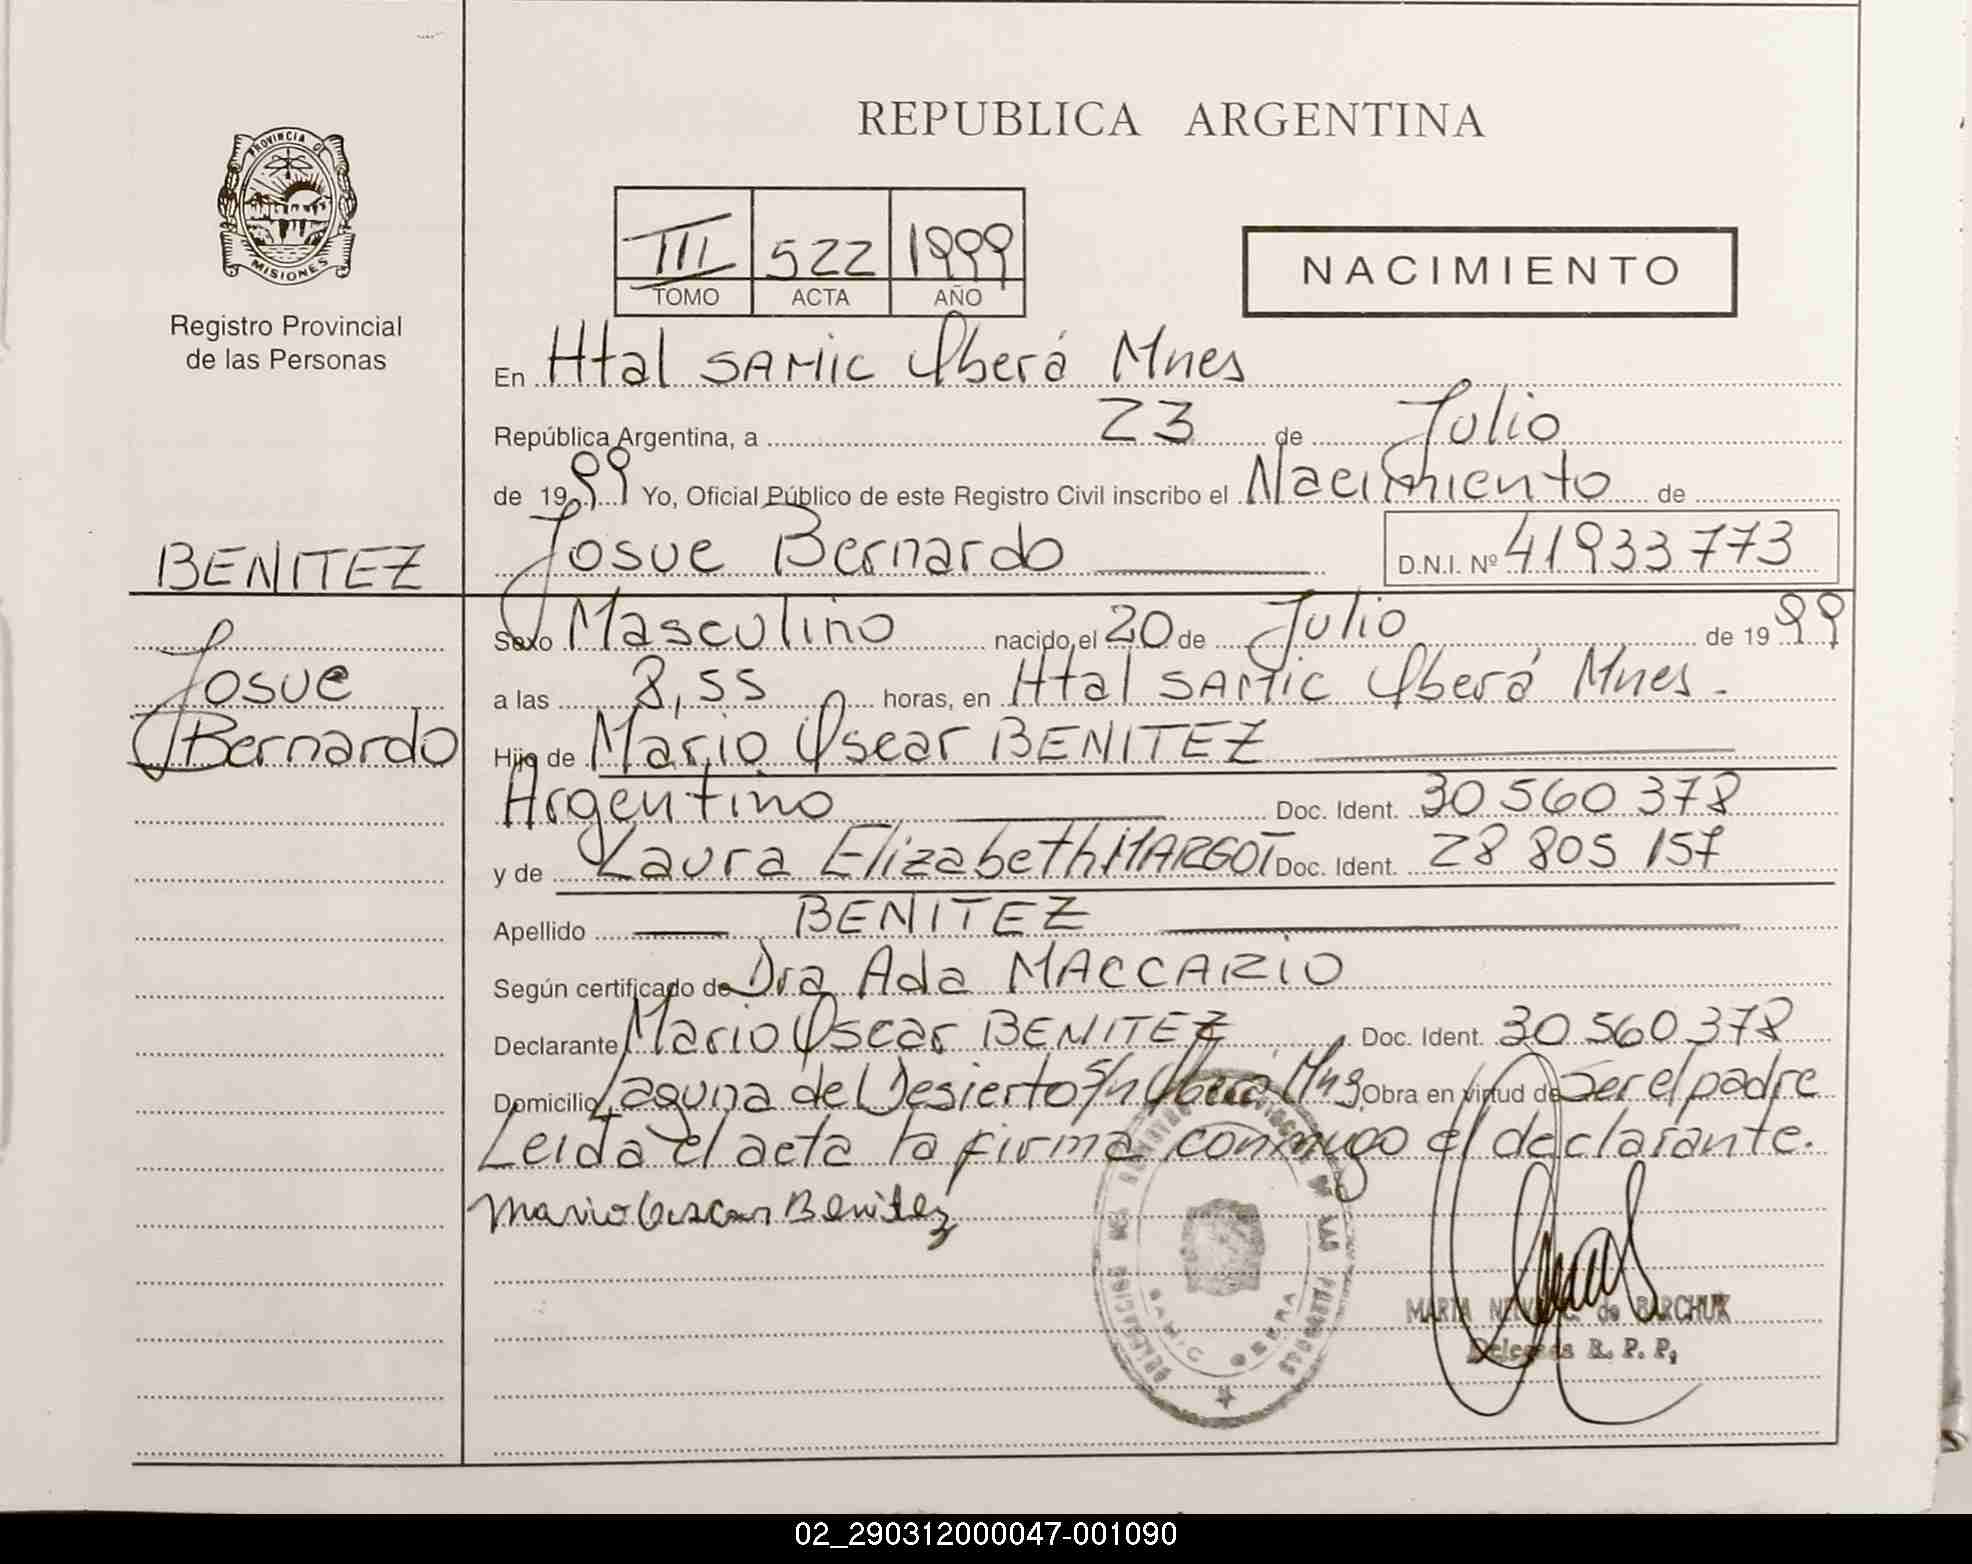 REPUBLICA ARGENTINA
PROVINCIA DE
MISIONES
Registro Provincial
de las Personas
III 522 1999
TOMO ACTA AÑO
NACIMIENTO
En Htal SAMIC Oberá Mnes
República Argentina, a 23 de Julio
de 1999 Yo, Oficial Público de este Registro Civil inscribo el Nacimiento de
BENITEZ
Josue Bernardo D.N.I. Nº 41933773
Josue
Bernardo
Sexo Masculino nacido el 20 de Julio de 1999
a las 8,55 horas, en Htal SAMIC Oberá Mnes.
Hijo de Mario Oscar BENITEZ
Argentino Doc. Ident. 30560378
y de Laura Elizabeth MARGOT Doc. Ident. 28 805 157
Apellido BENITEZ
Según certificado de Dra Ada MACCARIO
Declarante Mario Oscar BENITEZ Doc. Ident. 30560378
Domicilio Laguna del Desierto S/n Oberá Mns Obra en virtud de Ser el padre
Leida el acta la firma conmigo el declarante.
Mario Oscar Benitez
DELEGACION DEL REGISTRO PROVINCIAL DE LAS PERSONAS
SAMIC OBERA
MARTA de BARCHUK
R. P. P.
02_290312000047-001090